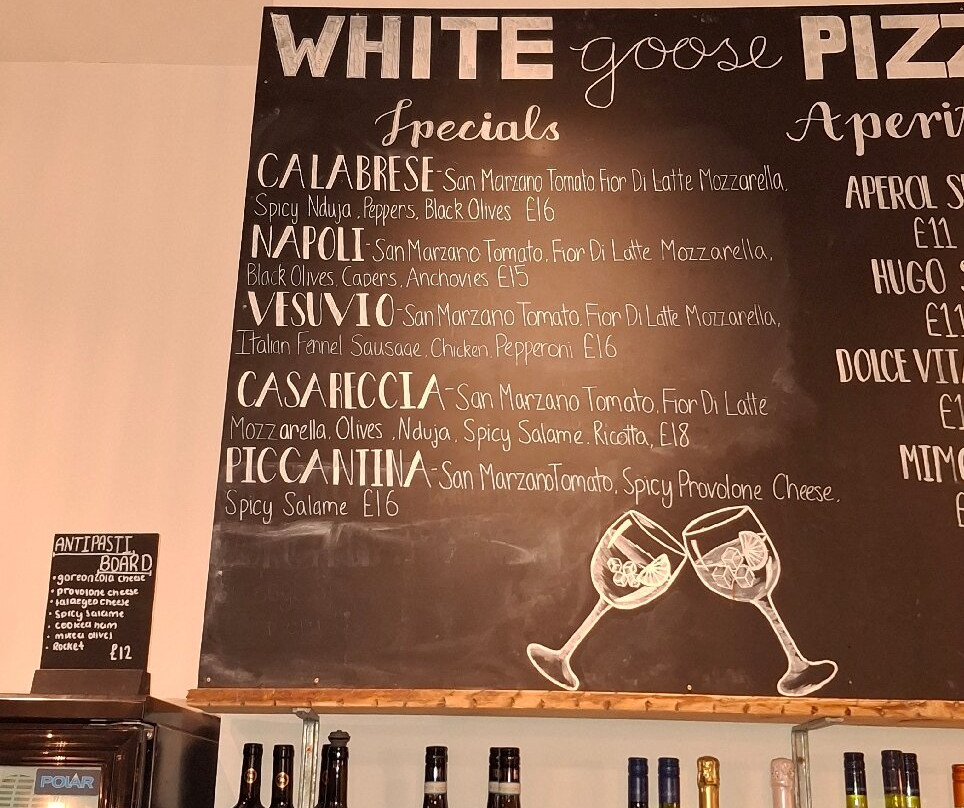 WHITE goose PIZZ
Specials
CALABRESE-San Marzano Tomato Fior Di Latte Mozzarella,
Spicy Nduja, Peppers, Black Olives £16
NAPOLI-San Marzano Tomato, Fior Di Latte Mozzarella,
Black Olives, Capers, Anchovies £15
VESUVIO-San Marzano Tomato, Fior Di Latte Mozzarella,
Italian Fennel Sausage, Chicken, Pepperoni £16
CASARECCIA-San Marzano Tomato, Fior Di Latte
Mozzarella, Olives, Nduja, Spicy Salame, Ricotta, £18
PICCANTINA-San Marzano Tomato, Spicy Provolone Cheese,
Spicy Salame £16
Aperi
APEROL S
£11
HUGO S
£11
DOLCE VITA
£1
MIMO
£
ANTIPASTI
BOARD
• gorgonzola cheese
• provolone cheese
• talaegeo cheese
• Spicy Salame
• cooked ham
• mixed olives
• Rocket £12
POLAR